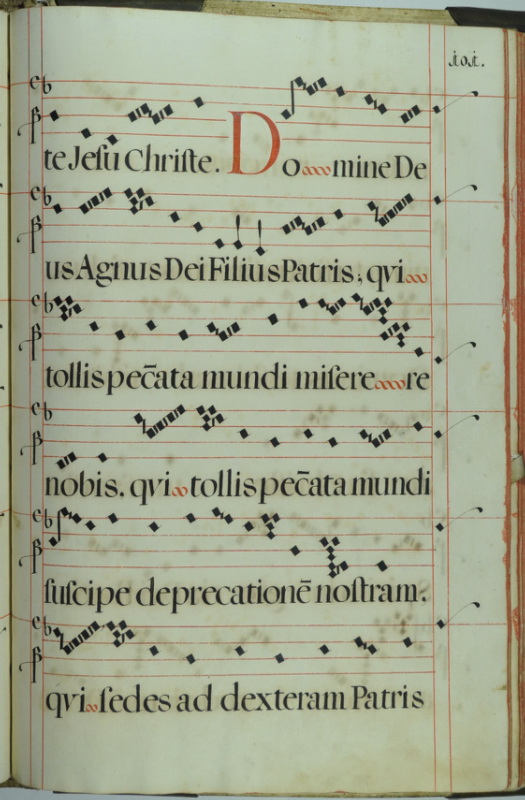 101.
te Jesu Christe. Domine De
us Agnus Dei Filius Patris, qvi
tollis pec̄ata mundi misere re
nobis. qvi tollis pec̄ata mundi
suscipe deprecationē nostram.
qvi sedes ad dexteram Patris